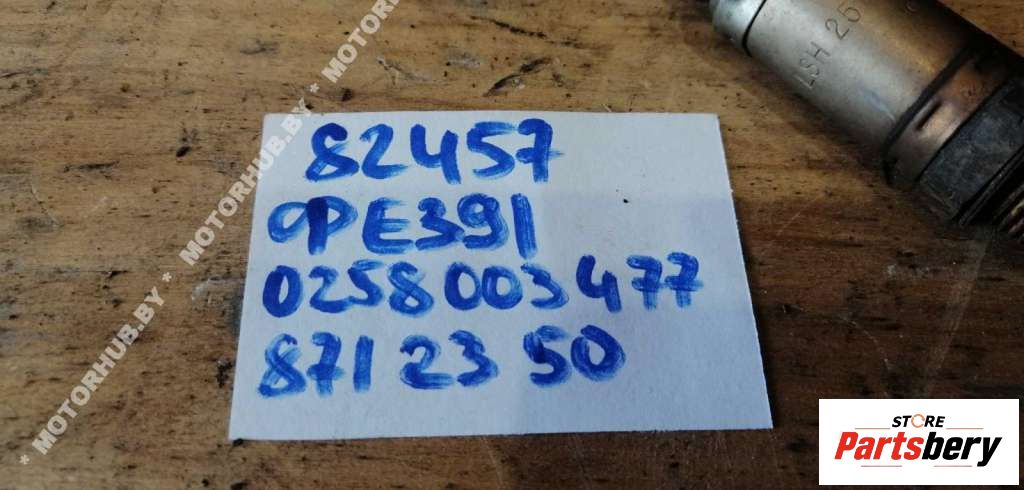 82457
ФРЕ391
0258 003 477
871 23 50
LSH 25
* MOTORHUB.BY * MOTORHUB.BY * MOTORHUB.BY * MOTOR
STORE
Partsbery